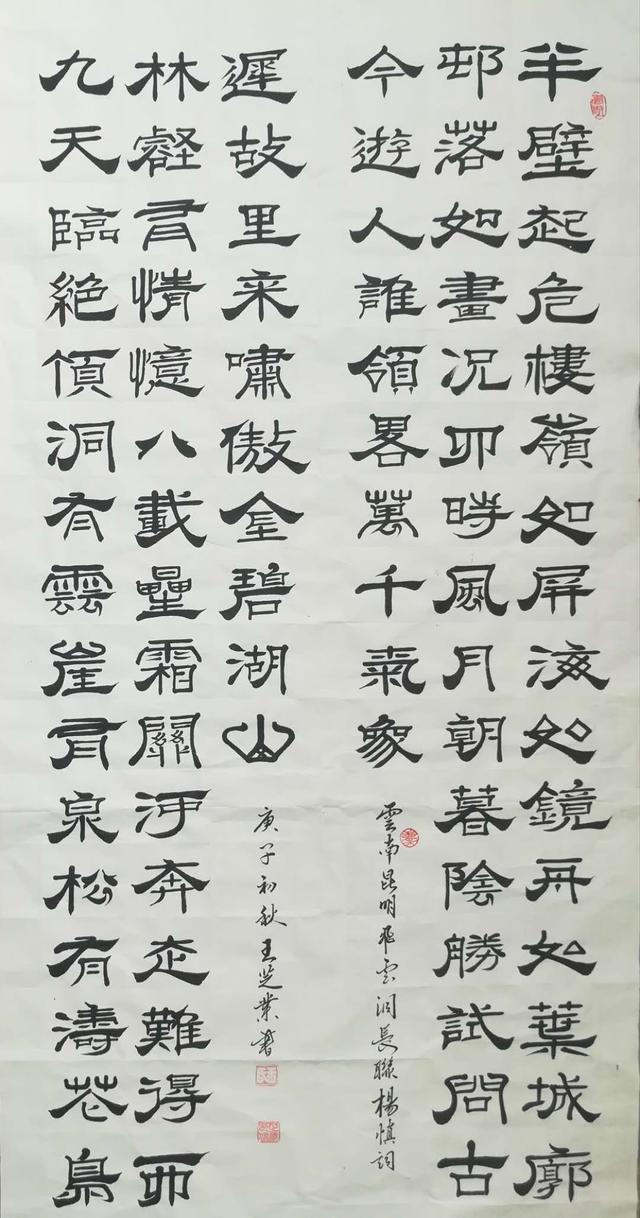 半壁起危樓嶺如屏海如鏡舟如葉城廓
邨落如畫况四時風月朝暮陰勝試問古
今遊人誰領畧萬千氣象
雲南昆明飛云洞長聯楊慎詞
九天臨絶頂洞有雲崖有泉松有濤花鳥
林壑有情憶八載星霜關河奔走難得西
遲故里来嘯傲金碧湖山
庚子初秋王芝業書